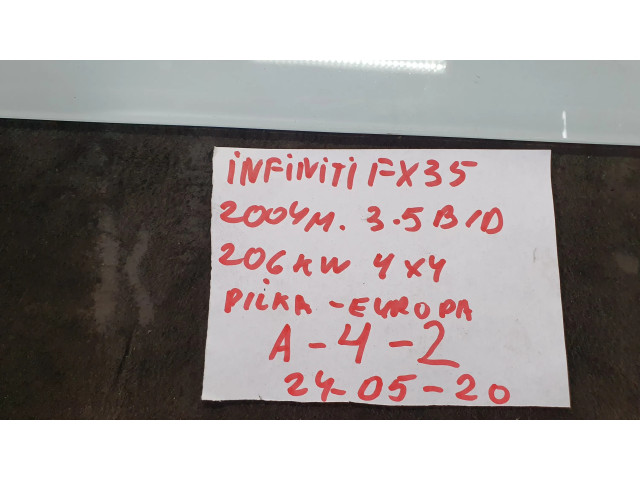 INFINITI FX35
2004M. 3.5 B/D
206KW 4X4
PILKA - EUROPA
A-4-2
24-05-20